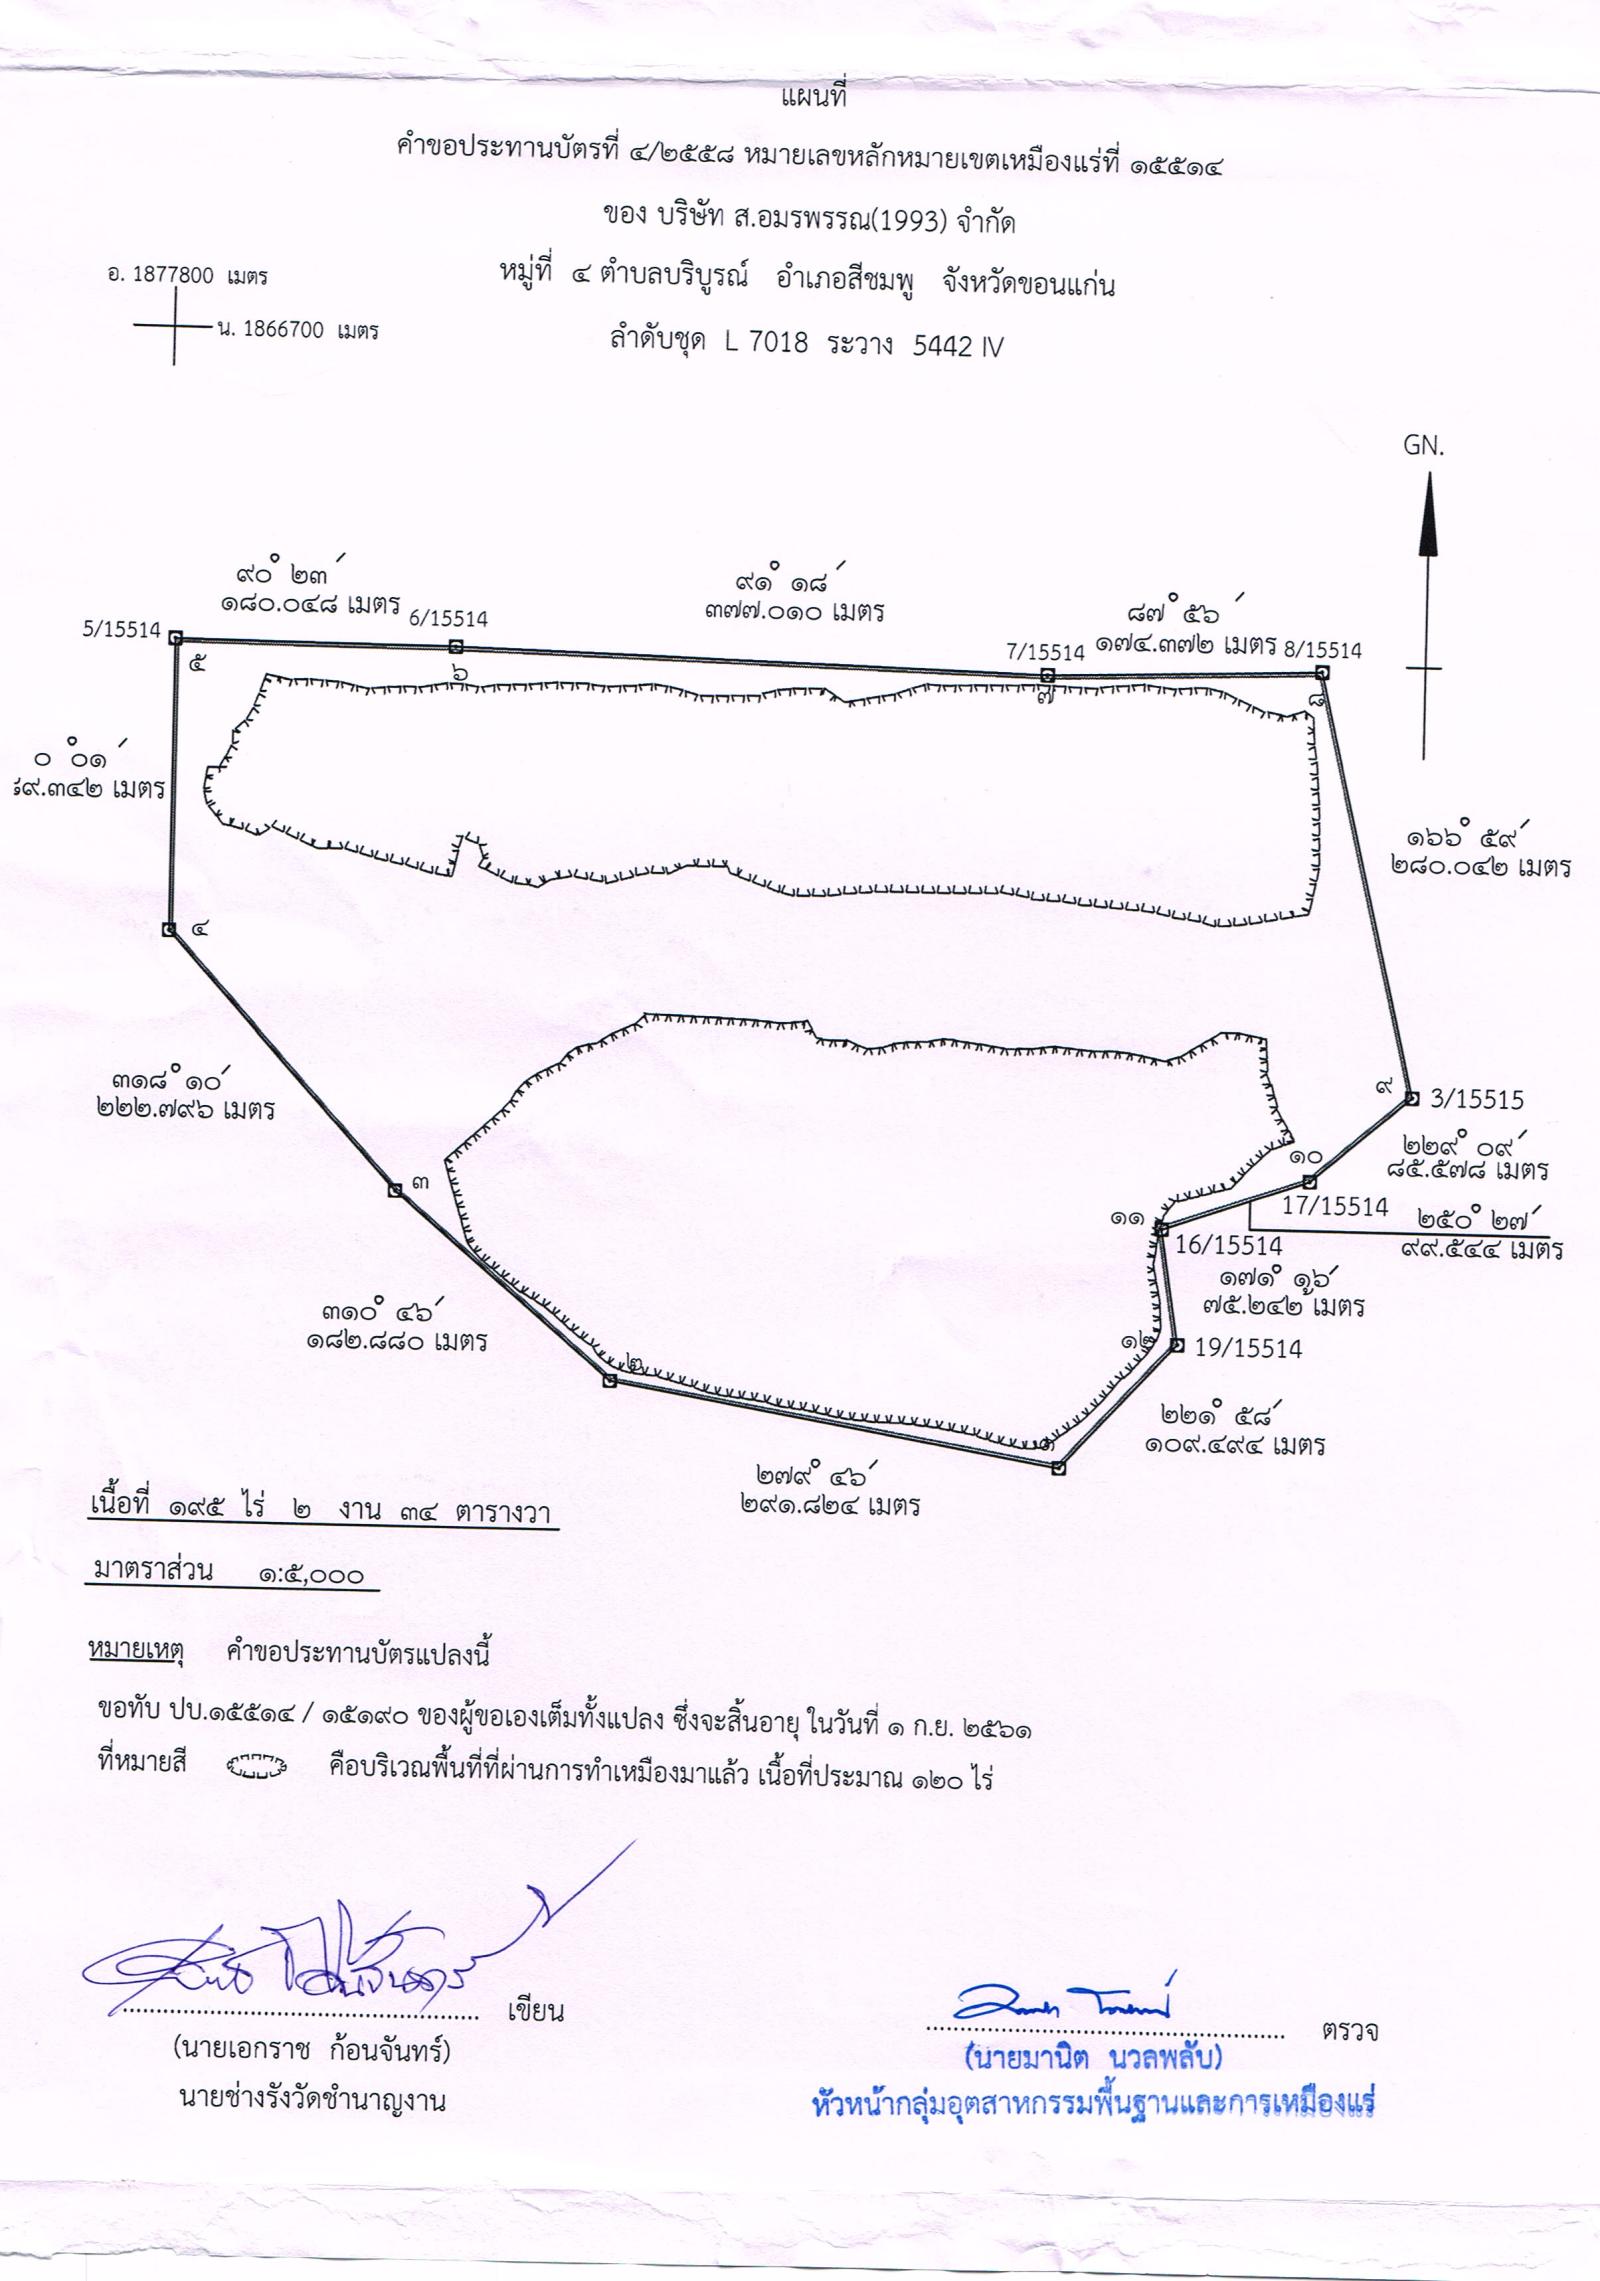 แผนที่
คำขอประทานบัตรที่ ๔/๒๕๕๘ หมายเลขหลักหมายเขตเหมืองแร่ที่ ๑๕๕๑๔
ของ บริษัท ส.อมรพรรณ(1993) จำกัด
หมู่ที่ ๔ ตำบลบริบูรณ์ อำเภอสีชมพู จังหวัดขอนแก่น
ลำดับชุด L 7018 ระวาง 5442 IV
อ. 1877800 เมตร
น. 1866700 เมตร
GN.
๙๐° ๒๓′
๑๘๐.๐๔๘ เมตร
๙๑° ๑๘′
๓๗๗.๐๑๐ เมตร
๘๗° ๕๖′
๑๗๔.๓๗๒ เมตร
5/15514
6/15514
7/15514
8/15514
๕
๖
๗
๘
๐ °๐๑′
๙.๓๔๒ เมตร
๔
๑๖๖° ๕๙′
๒๘๐.๐๔๒ เมตร
๓๑๘° ๑๐′
๒๒๒.๗๙๖ เมตร
๓
๙
3/15515
๒๒๙° ๐๙′
๘๕.๕๗๘ เมตร
๑๐
17/15514
๒๕๐° ๒๗′
๙๙.๕๔๔ เมตร
๑๑
16/15514
๑๗๑° ๑๖′
๗๕.๒๔๒ เมตร
๑๒
19/15514
๓๑๐° ๔๖′
๑๘๒.๘๘๐ เมตร
๒
๒๒๑° ๕๘′
๑๐๙.๔๙๔ เมตร
๑
๒๗๙° ๔๖′
๒๙๑.๘๒๔ เมตร
เนื้อที่ ๑๙๕ ไร่ ๒ งาน ๓๔ ตารางวา
มาตราส่วน ๑:๕,๐๐๐
หมายเหตุ คำขอประทานบัตรแปลงนี้
ขอทับ ปบ.๑๕๕๑๔ / ๑๕๑๙๐ ของผู้ขอเองเต็มทั้งแปลง ซึ่งจะสิ้นอายุ ในวันที่ ๑ ก.ย. ๒๕๖๑
ที่หมายสี คือบริเวณพื้นที่ที่ผ่านการทำเหมืองมาแล้ว เนื้อที่ประมาณ ๑๒๐ ไร่
เขียน
(นายเอกราช ก้อนจันทร์)
นายช่างรังวัดชำนาญงาน
ตรวจ
(นายมานิต นวลพลับ)
หัวหน้ากลุ่มอุตสาหกรรมพื้นฐานและการเหมืองแร่